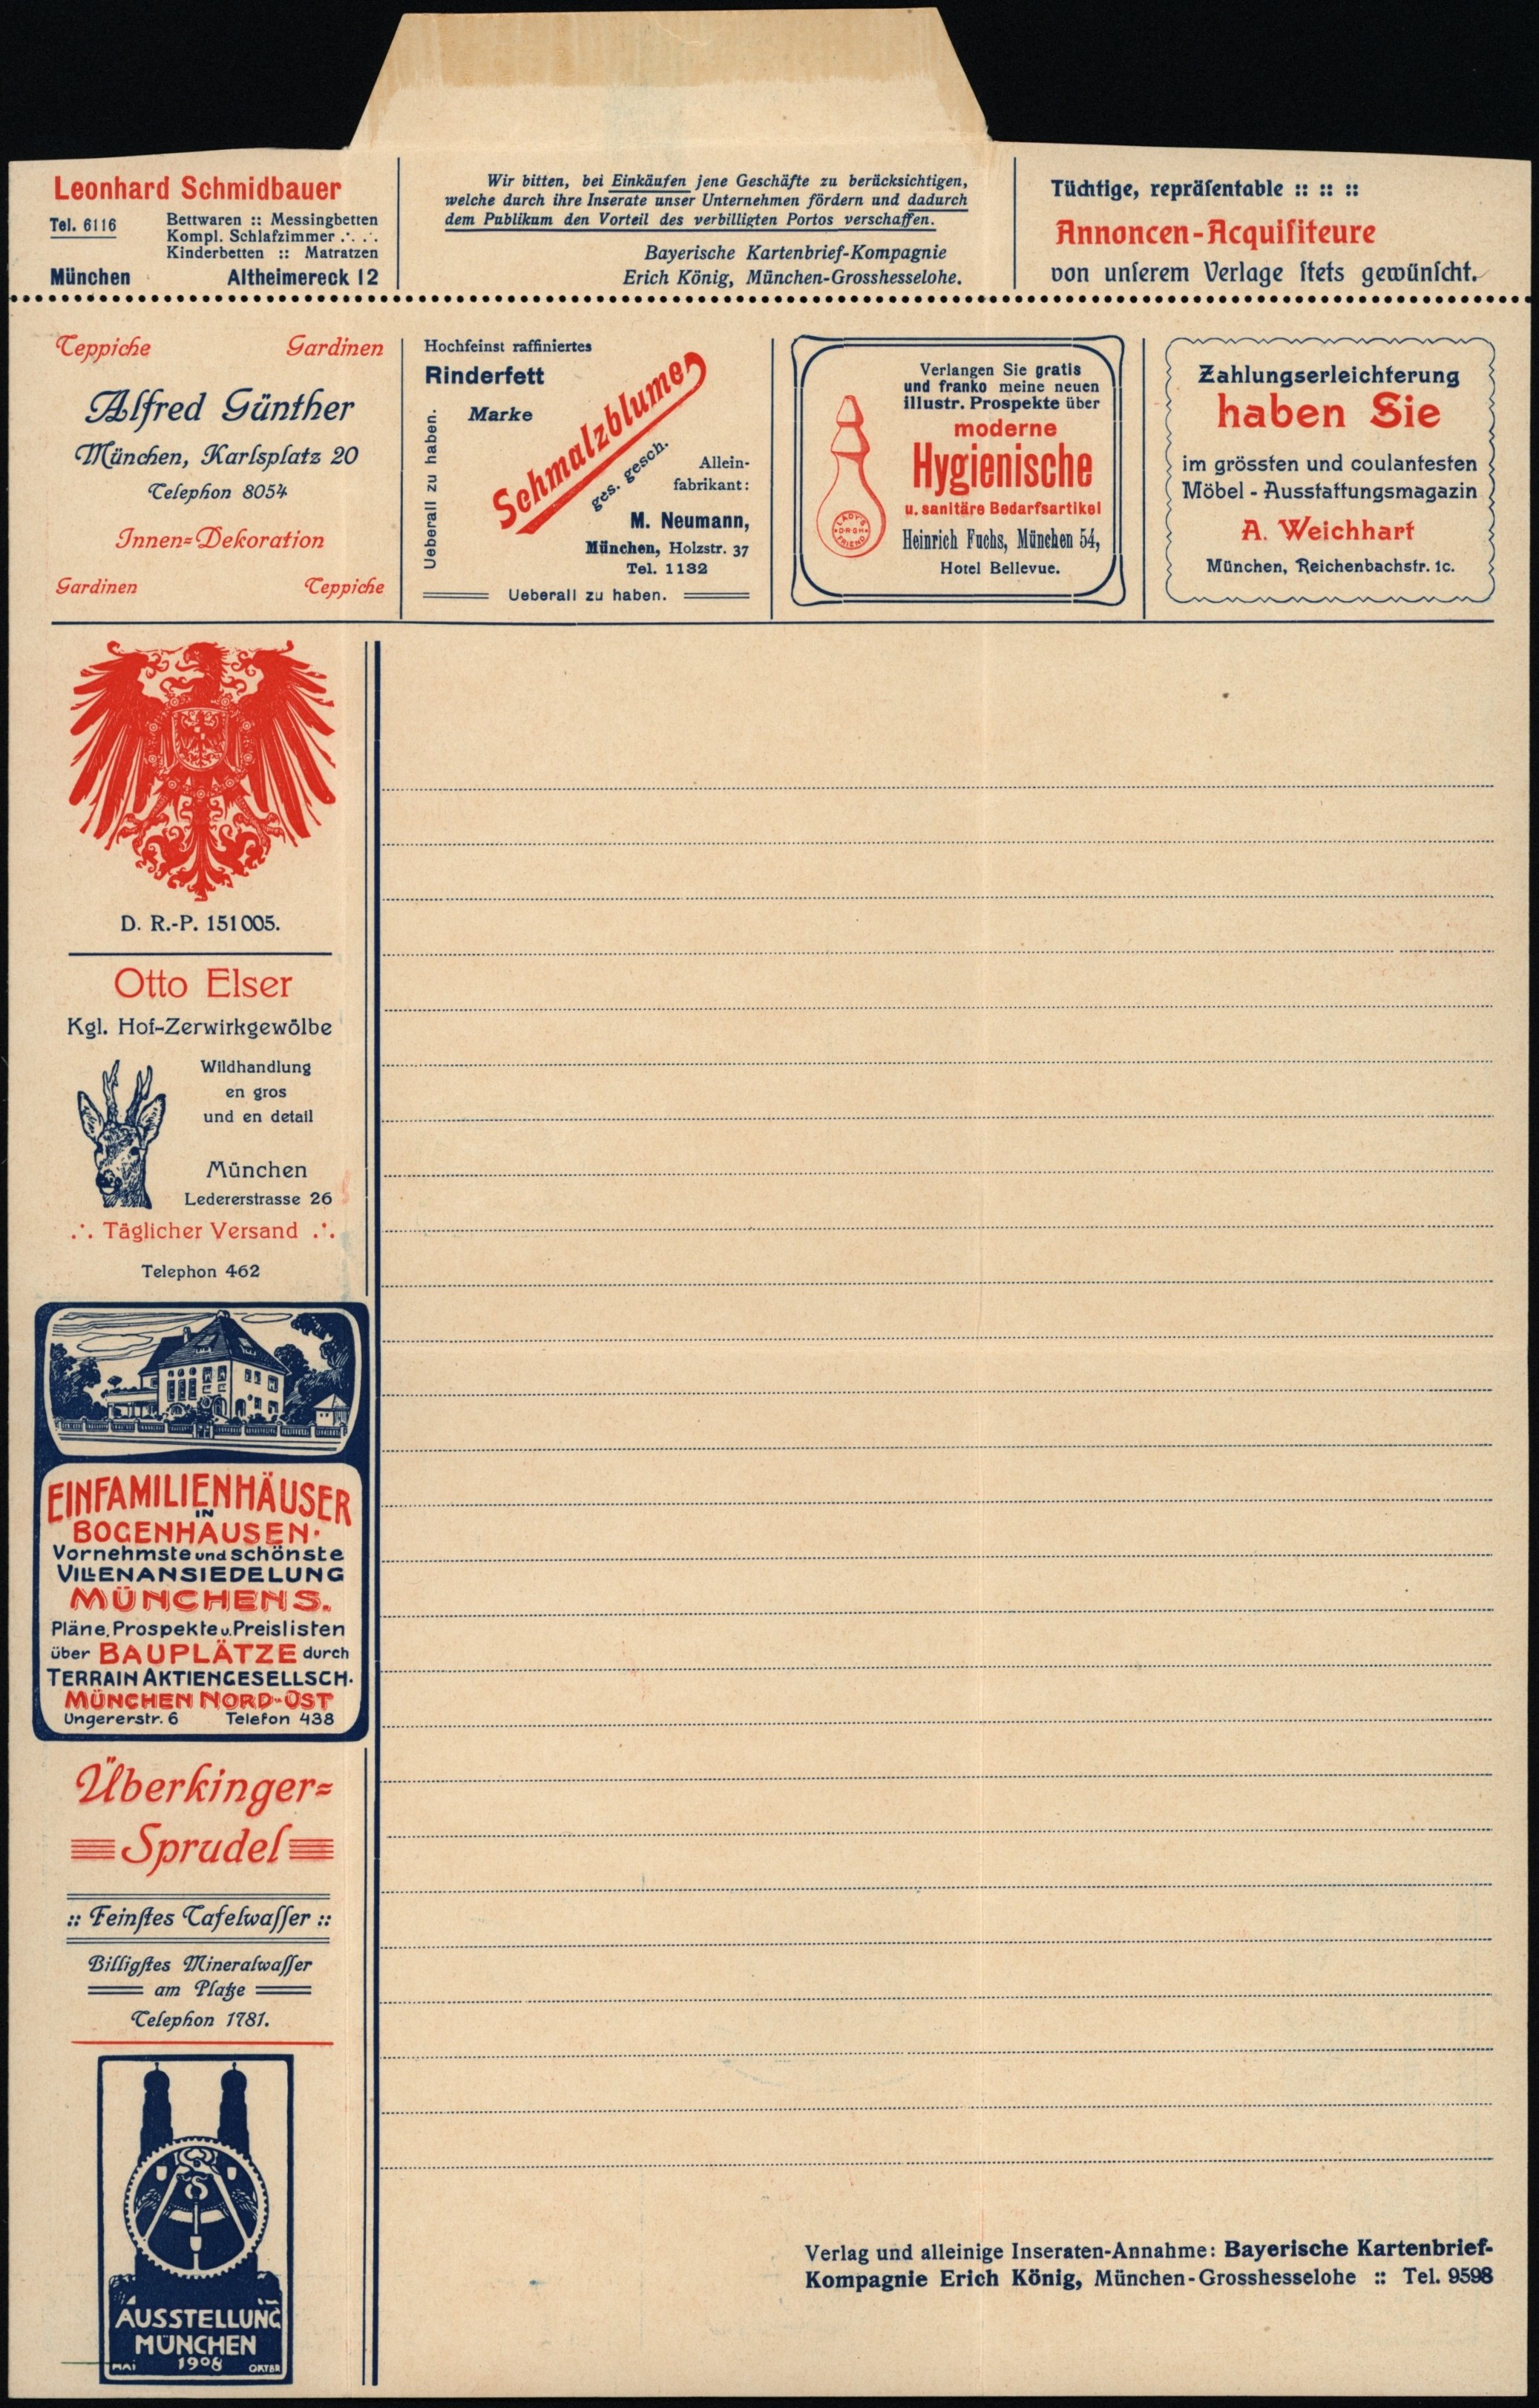 Leonhard Schmidbauer
Tel. 6116
Bettwaren :: Messingbetten
Kompl. Schlafzimmer .·. .·.
Kinderbetten :: Matratzen
München Altheimereck 12
Wir bitten, bei Einkäufen jene Geschäfte zu berücksichtigen,
welche durch ihre Inserate unser Unternehmen fördern und dadurch
dem Publikum den Vorteil des verbilligten Portos verschaffen.
Bayerische Kartenbrief-Kompagnie
Erich König, München-Grosshesselohe.
Tüchtige, repräſentable :: :: ::
Annoncen-Acquiſiteure
von unſerem Verlage ſtets gewünſcht.
Teppiche Gardinen
Alfred Günther
München, Karlsplatz 20
Telephon 8054
Innen=Dekoration
Gardinen Teppiche
Hochfeinst raffiniertes
Rinderfett
Marke
Schmalzblume
ges. gesch.
Ueberall zu haben.
Allein-
fabrikant:
M. Neumann,
München, Holzstr. 37
Tel. 1132
Ueberall zu haben.
Verlangen Sie gratis
und franko meine neuen
illustr. Prospekte über
moderne
Hygienische
u. sanitäre Bedarfsartikel
Heinrich Fuchs, München 54,
Hotel Bellevue.
LADY'S
D·R·G·M
FRIEND
Zahlungserleichterung
haben Sie
im grössten und coulantesten
Möbel - Ausstattungsmagazin
A. Weichhart
München, Reichenbachstr. 1c.
D. R.-P. 151005.
Otto Elser
Kgl. Hof-Zerwirkgewölbe
Wildhandlung
en gros
und en detail
München
Ledererstrasse 26
.·. Täglicher Versand .·.
Telephon 462
EINFAMILIENHÄUSER
IN
BOGENHAUSEN·
Vornehmste und schönste
VILLENANSIEDELUNG
MÜNCHENS.
Pläne, Prospekte u. Preislisten
über BAUPLÄTZE durch
TERRAIN AKTIENGESELLSCH·
MÜNCHEN NORD-OST
Ungererstr. 6 Telefon 438
Überkinger=
Sprudel
:: Feinſtes Tafelwaſſer ::
Billigſtes Mineralwaſſer
am Platze
Telephon 1781.
AUSSTELLUNG
MÜNCHEN
MAI 1908 OKTBR
Verlag und alleinige Inseraten-Annahme: Bayerische Kartenbrief-
Kompagnie Erich König, München-Grosshesselohe :: Tel. 9598